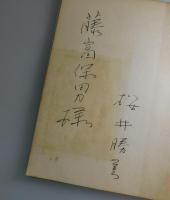 藤富保男様
桜井勝美